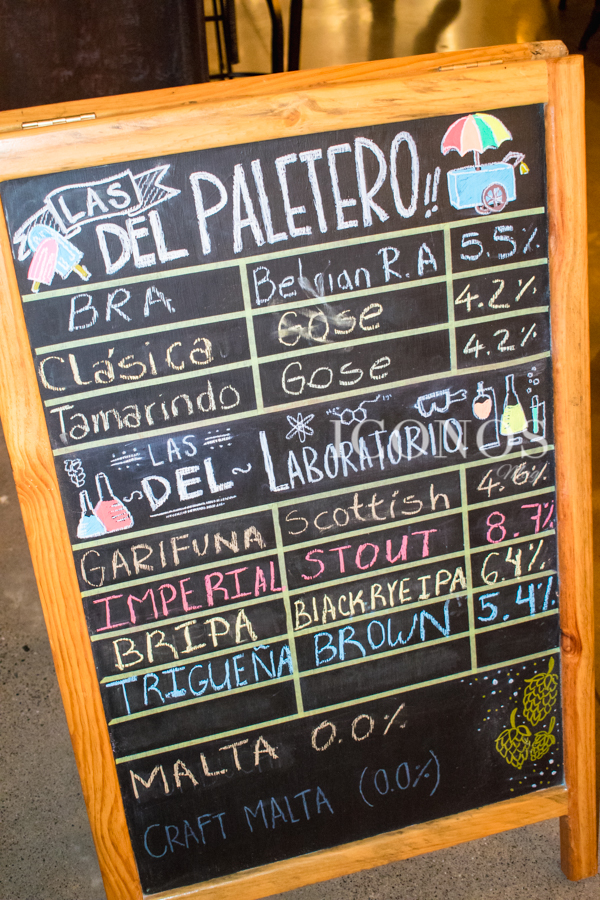 LAS
DEL PALETERO!!
BRA Belgian R.A 5.5%
Clásica Gose 4.2%
Tamarindo Gose 4.2%
LAS
DEL LABORATORIO
ICONOS
GARIFUNA Scottish
IMPERIAL STOUT 8.7%
BRIPA BLACK RYE IPA 6.4%
TRIGUEÑA BROWN 5.4%
MALTA 0.0%
CRAFT MALTA (0.0%)